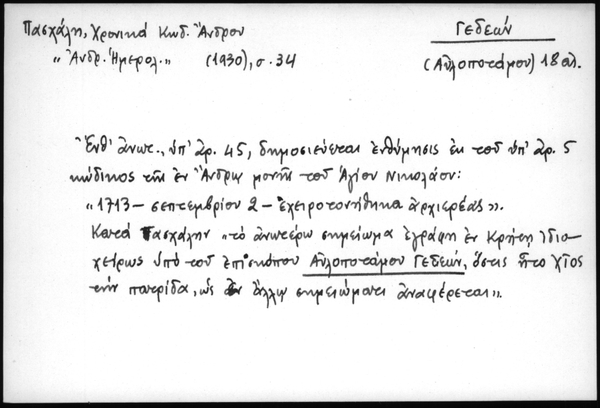 Πασχάλη, Χρονικά Κωδ. Ἄνδρου
Γεδεών
"Ἀνδρ. Ἡμερολ." (1930), σ. 34
(Αὐλοποτάμου) 18 αἰ.
Ἔνθ' ἀνωτ., ὑπ' ἀρ. 45, δημοσιεύεται ἐνθύμησις ἐκ τοῦ ὑπ' ἀρ. 5
κώδικος τῆς ἐν Ἄνδρῳ μονῆς τοῦ Ἁγίου Νικολάου:
"1713 - σεπτεμβρίου 2 - ἐχειροτονήθηκα ἀρχιερέας".
Κατά Πασχάλην "τό ἀνωτέρω σημείωμα ἐγράφη ἐν Κρήτῃ ἰδιο-
χείρως ὑπό τοῦ ἐπισκόπου Αὐλοποτάμου Γεδεών, ὅστις ἦτο Χῖος
τήν πατρίδα, ὡς ἐν ἄλλῳ σημειώματι ἀναφέρεται".